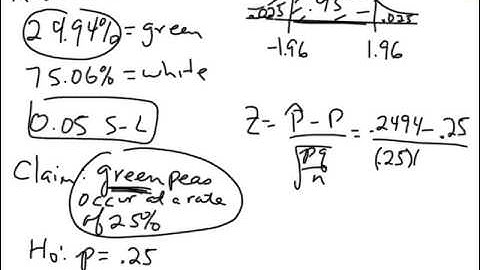 24.94% = green
75.06% = white
0.05 S-L
Claim: green peas
occur at a rate
of 25%
H₀: p = .25
.025 .95 .025
-1.96 1.96
Z = P̂ - P / √(pq/n) = .2494 - .25 / (.25)(